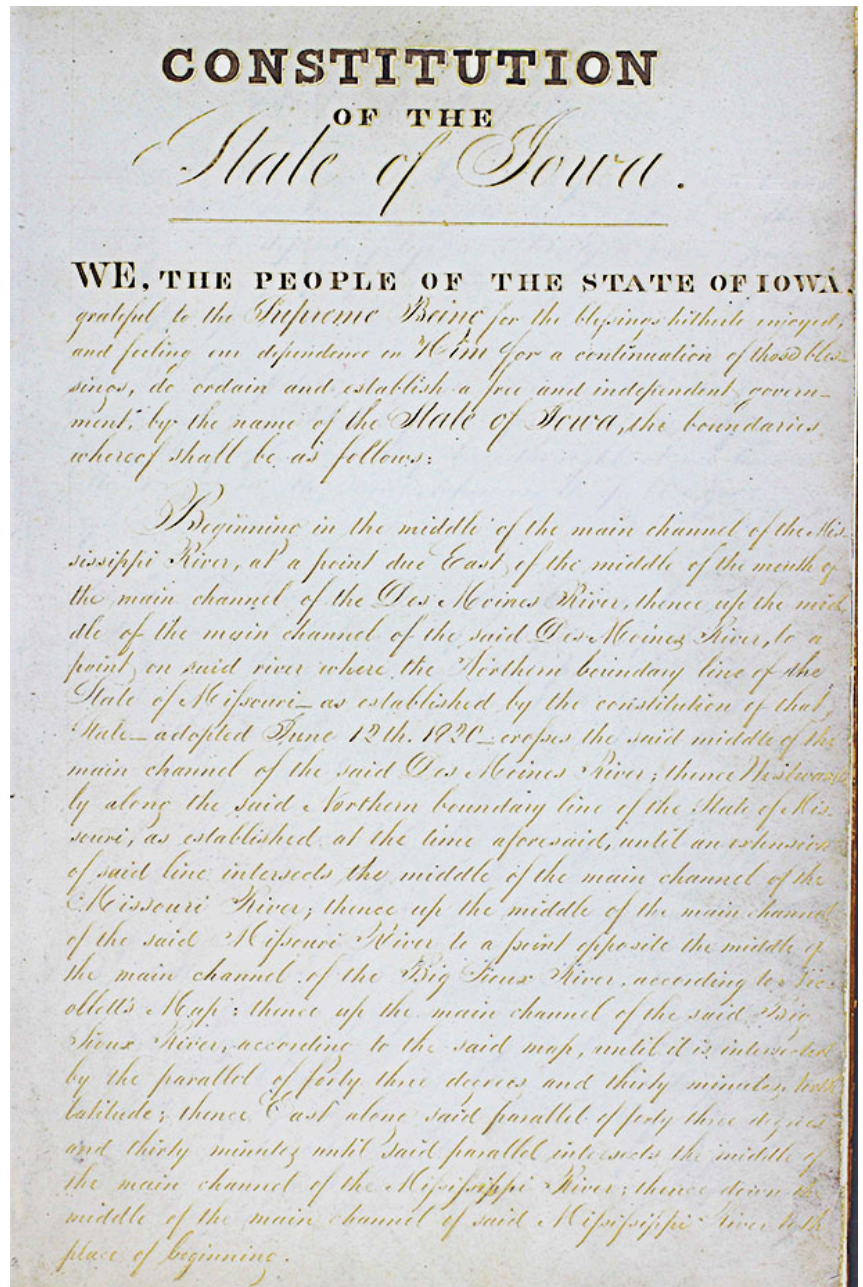 CONSTITUTION
OF THE
State of Iowa.
WE, THE PEOPLE OF THE STATE OF IOWA,
grateful to the Supreme Being for the blessings hitherto enjoyed,
and feeling our dependence on Him for a continuation of those bles-
sings, do ordain and establish a free and independent govern-
ment, by the name of the State of Iowa, the boundaries
whereof shall be as follows:
Beginning in the middle of the main channel of the Mis-
sissippi River, at a point due East of the middle of the mouth of
the main channel of the Des Moines River, thence up the mid-
dle of the main channel of the said Des Moines River, to a
point on said river where the Northern boundary line of the
State of Missouri—as established by the constitution of that
State—adopted June 12th. 1820—crosses the said middle of the
main channel of the said Des Moines River; thence Westward-
ly along the said Northern boundary line of the State of Mis-
souri, as established at the time aforesaid, until an extension
of said line intersects the middle of the main channel of the
Missouri River; thence up the middle of the main channel
of the said Missouri River to a point opposite the middle of
the main channel of the Big Sioux River, according to Nic-
ollett's Map: thence up the main channel of the said Big
Sioux River, according to the said map, until it is intersected
by the parallel of forty three degrees and thirty minutes North
latitude; thence East along said parallel of forty three degrees
and thirty minutes until said parallel intersects the middle of
the main channel of the Mississippi River; thence down the
middle of the main channel of said Mississippi River to the
place of beginning.